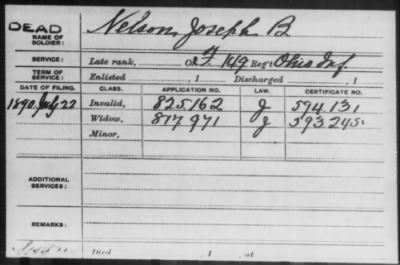 DEAD
NAME OF SOLDIER: Nelson, Joseph B
SERVICE: Late rank, Co. F, 149 Reg't Ohio Inf.
TERM OF SERVICE: Enlisted , 1 Discharged , 1
DATE OF FILING. CLASS. APPLICATION NO. LAW. CERTIFICATE NO.
1890 July 22 Invalid, 825.162 J 594.131
Widow, 877.971 J 593.245
Minor,
ADDITIONAL SERVICES:
REMARKS:
Died , 1 , at